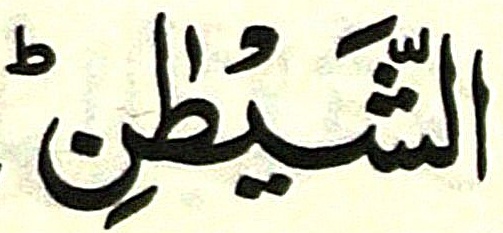 الشَّيْطٰنِ ؕ